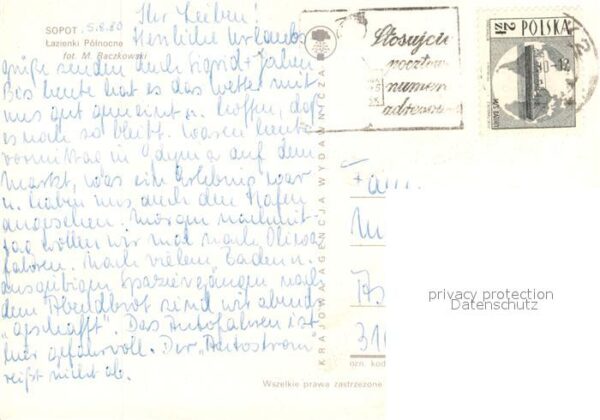 SOPOT 5.8.80
Łazienki Północne
fot. M. Raczkowski
Ihr Lieben!
Herzliche Urlaubs
grüße senden Euch
Bis heute hat es das Wetter mit
uns gut gemeint u. hoffen, daß
es noch so bleibt. Waren heute
vormittag in Gdynia auf dem
Markt, was ein Erlebnis war
u. haben uns auch den Hafen
angesehen. Morgen nachmit-
tag wollen wir mal nach Oliwa
fahren. Nach vielem Baden u.
ausgiebigen Spaziergängen nach
dem Abendbrot sind wir abends
"geschafft". Das Autofahren ist
hier gefahrvoll. Der "Autostrom"
reißt nicht ab.
KRAJOWA AGENCJA WYDAWNICZA
Stosujcie
pocztowe
numery
adresowe
POLSKA
2 zł
80-12
Fam.
privacy protection
Datenschutz
ozn. kod
Wszelkie prawa zastrzeżone